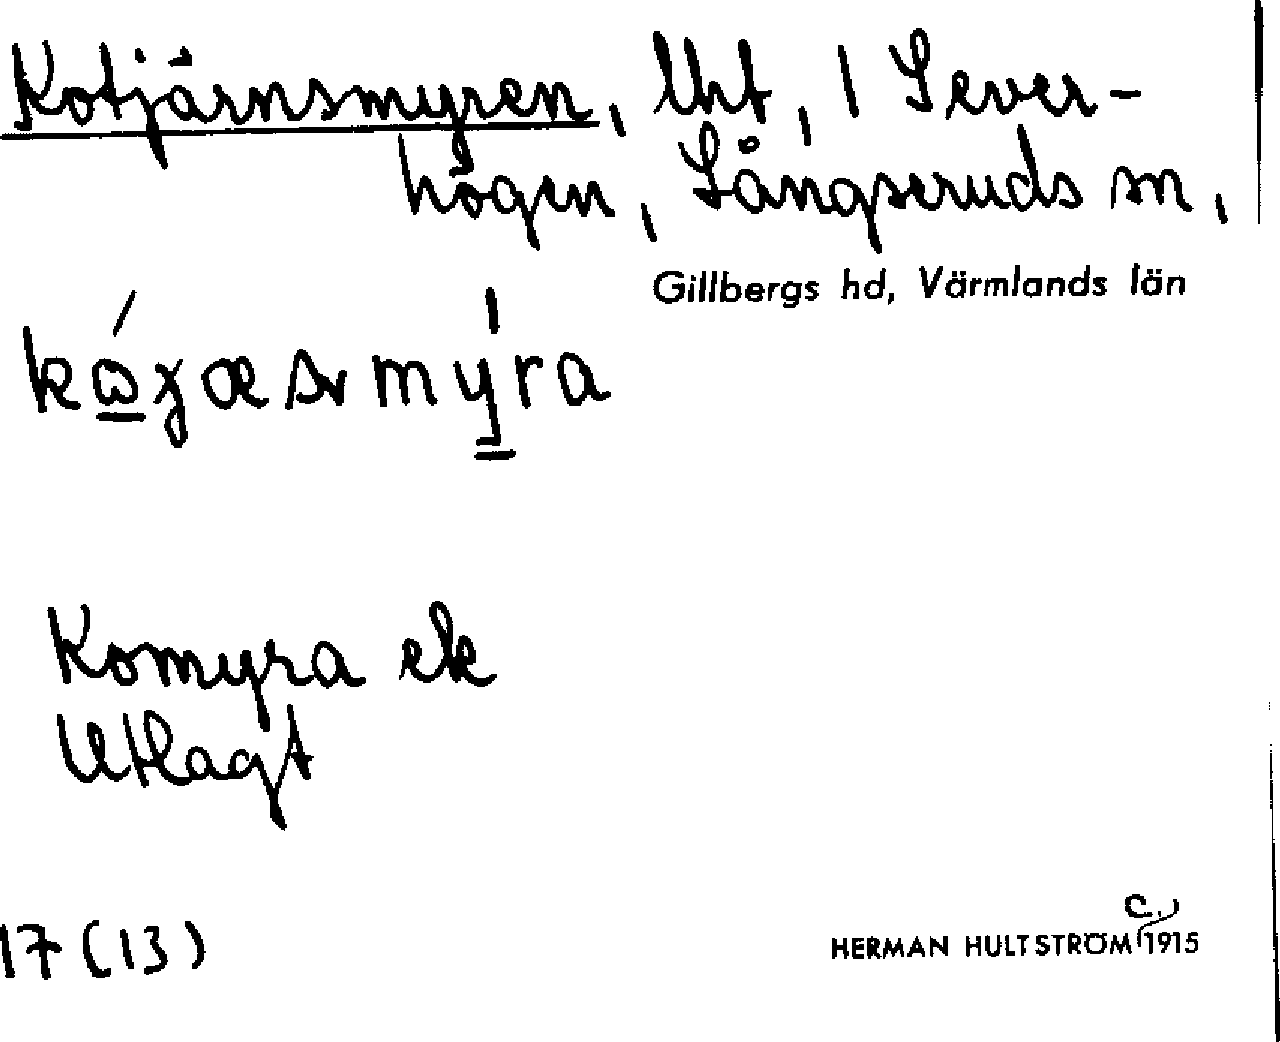 Kotjärnsmyren, lht, 1 Sever-
högen, Långseruds sn,
Gillbergs hd, Värmlands län
Komyra ek
Utlagt
17 (13)
c.
HERMAN HULTSTRÖM 1915